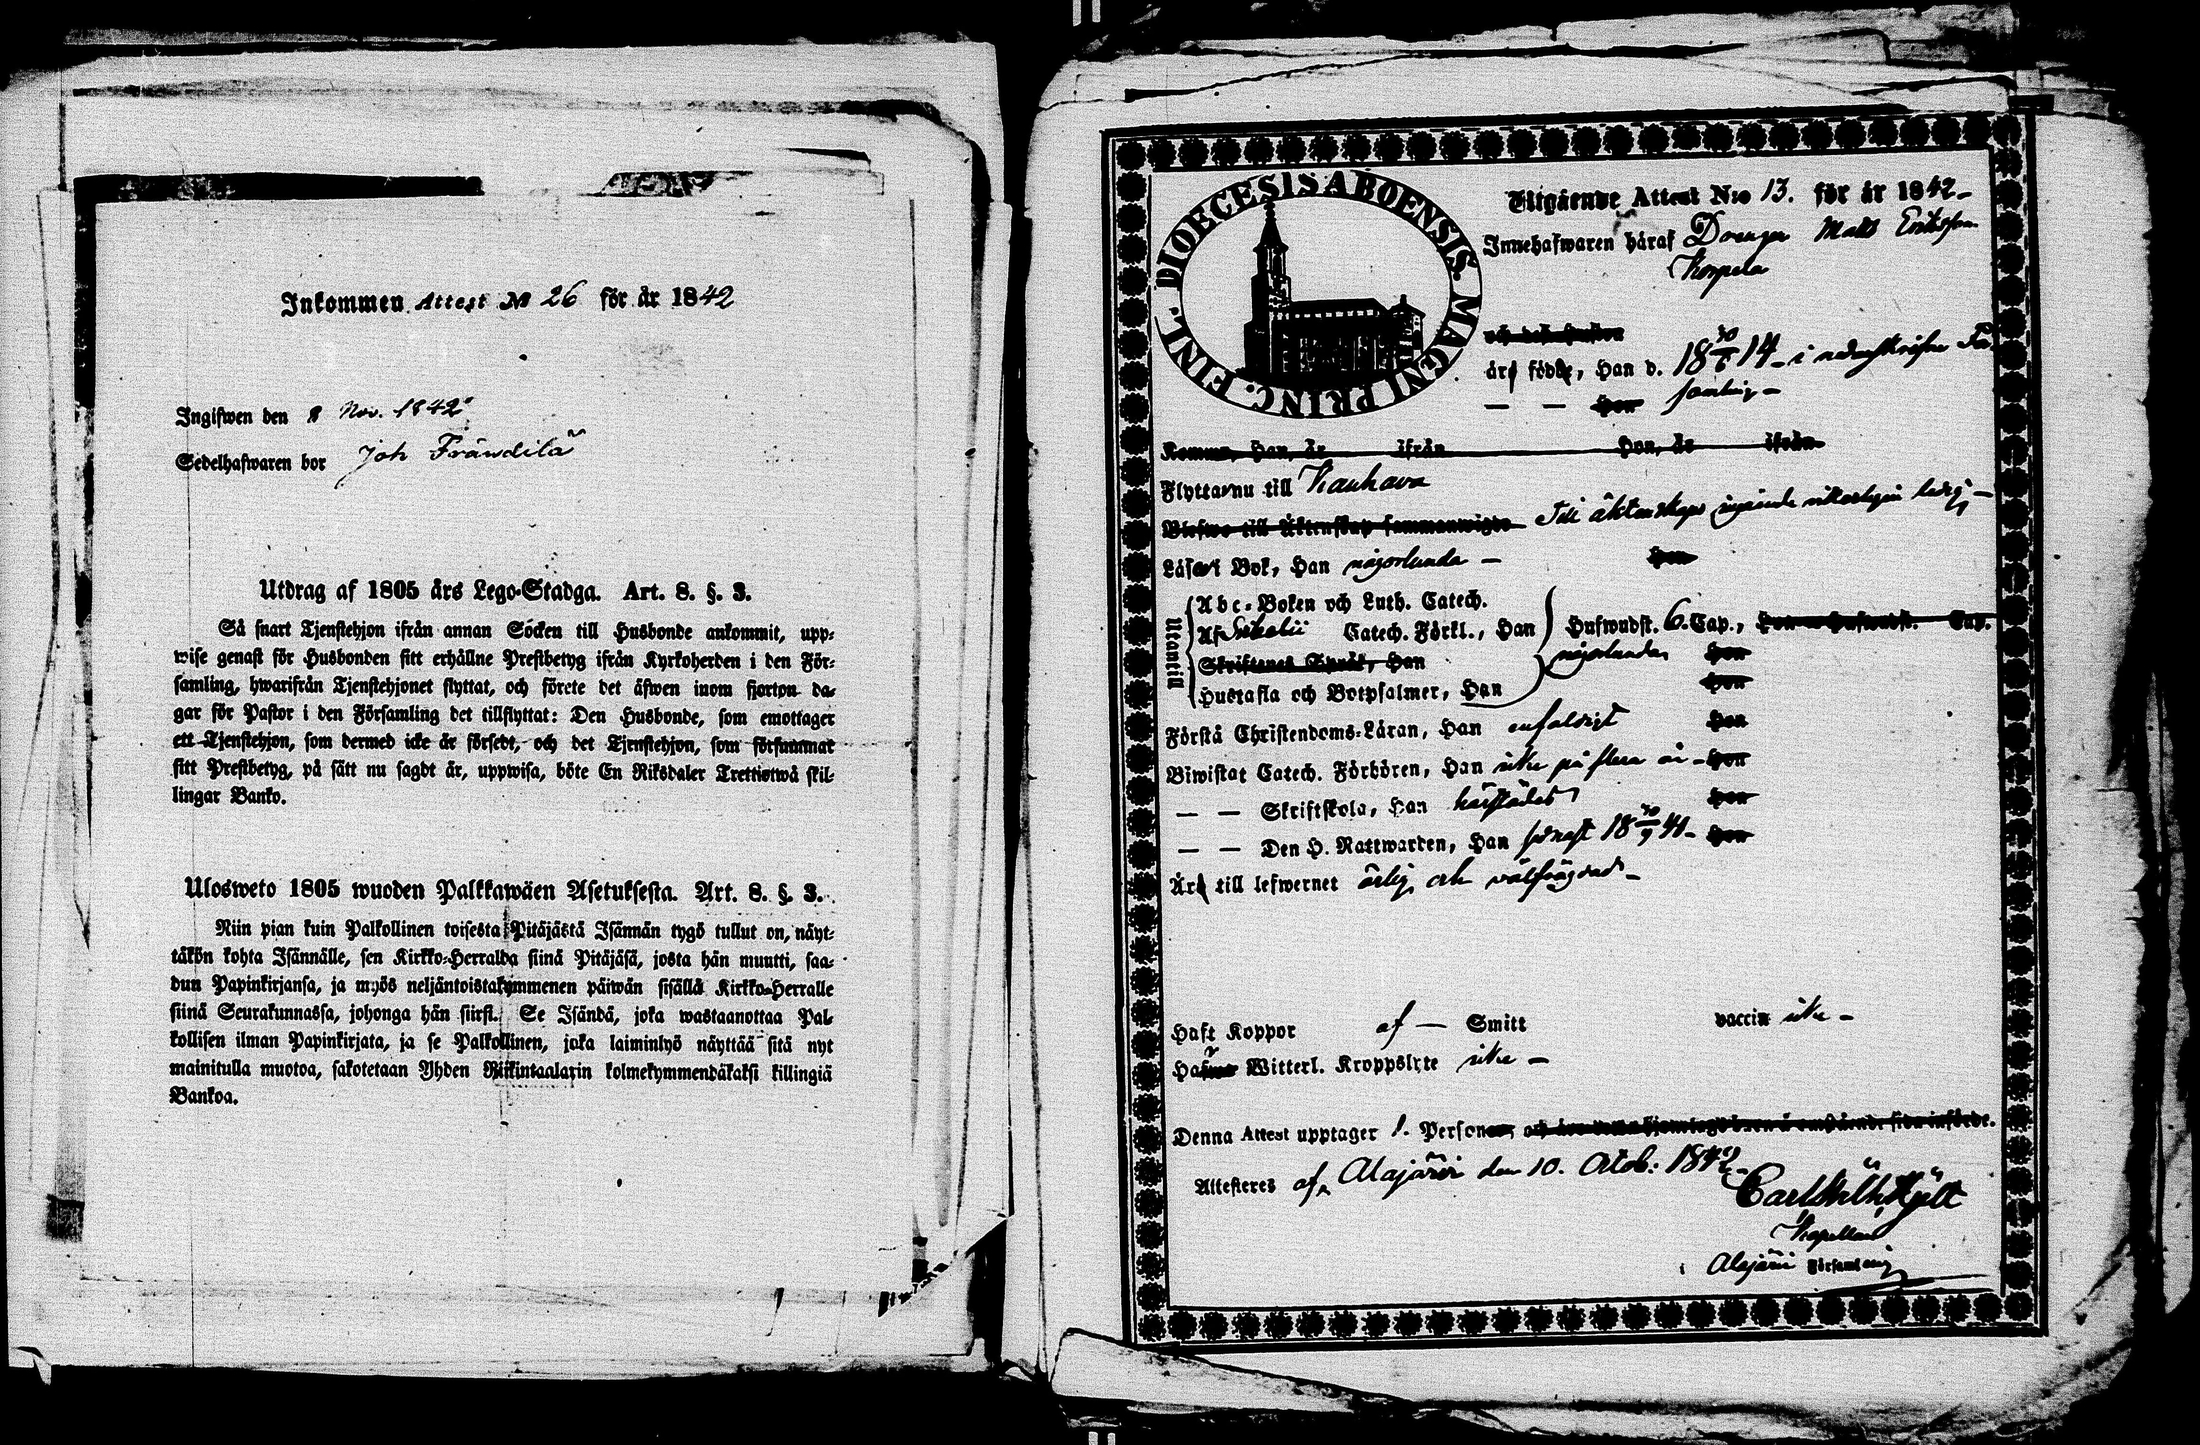 Inkommen Attest № 26 för år 1842
Ingifwen den 8 Nov. 1842
Sedelhafwaren bor Joh Fränsdilä
Utdrag af 1805 års Lego-Stadga. Art. 8. §. 3.
Så snart Tjenstehjon ifrån annan Söcken till Husbonde ankommit, upp-
wise genast för Husbonden sitt erhållne Prestbetyg ifrån Kyrkoherden i den För-
samling, hwarifrån Tjenstehjonet flyttat, och förete det äfwen inom fjorton da-
gar för Pastor i den Församling det tillflyttat: Den Husbonde, som emottager
ett Tjenstehjon, som dermed icke är försedt, och det Tjenstehjon, som försummat
sitt Prestbetyg, på sätt nu sagdt är, uppwisa, böte En Riksdaler Trettiotwå skil-
lingar Banko.
Ulosweto 1805 wuoden Palkkawäen Asetuksesta. Art. 8. §. 3.
Niin pian kuin Palkollinen toisesta Pitäjästä Isännän tygö tullut on, näyt-
täkön kohta Isännälle, sen Kirkko-Herralda siinä Pitäjäsä, josta hän muutti, saa-
dun Papinkirjansa, ja myös neljäntoistakymmenen päiwän sisällä Kirkko-Herralle
siinä Seurakunnassa, johonga hän siirst. Se Isändä, joka wastaanottaa Pal-
kollisen ilman Papinkirjata, ja se Palkollinen, joka laiminlyö näyttää sitä nyt
mainitulla muotoa, sakotetaan Yhden Riikintaalarin kolmekymmendäkaksi killingiä
Bankoa.
DIOECESIS ABOENSIS. MAGNI PRINC. FINL.
Utgående Attest N:o 13. för år 1842-
Innehafwaren häraf Drengen Matts Eriksson
Korpela
och des hustru
äro födde, Han d. 18 30/6 14- i nedanskrifne För-
— — Hon samling-
Komne, Han, år ifrån Hon, år ifrån
Flytta nu till Kauhava
Blefwo till Äktenskap sammanwigde Till äktenskaps ingående vitterligen ledig-
Läsa i Bok, Han någorlunda - Hon
Utantill
Abc-Boken och Luth. Catech.
Af Svebelii Catech. Förkl., Han Hufwudst. 6. Cap., Hon Hufwudst. Cap.
Skriftenes Språk, Han någorlunda Hon
Hustafla och Botpsalmer, Han Hon
Förstå Christendoms-Läran, Han enfaldigt Hon
Biwistat Catech. Förhören, Han icke på flera år - Hon
— — Skriftskola, Han härstädes Hon
— — Den H. Nattwarden, Han senast 18 30/9 41- Hon
Äro till lefwernet ärlig och välfrägdad-
Haft Koppor af — Smitt vaccin icke -
Hafwa Witterl. Kroppslyte icke -
Denna Attest upptager 1. Personer, och äro deras hjemtagd barn å omstående sida införde.
Attesteres af, Alajärvi den 10. Octob: 1842-
Carl Wilh Hjelt
Kapellan
i Alajärvi Församling